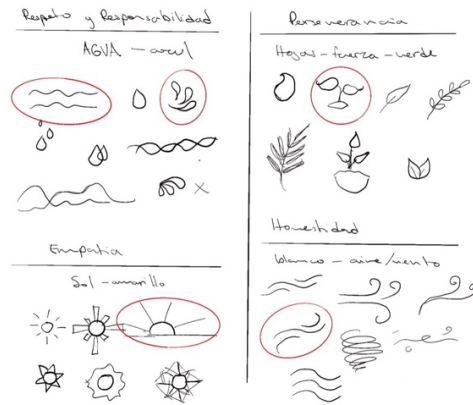 Respeto y Responsabilidad
AGUA - azul
Empatia
Sol - amarillo
Perseverancia
Hojas - fuerza - verde
Honestidad
blanco - aire/viento